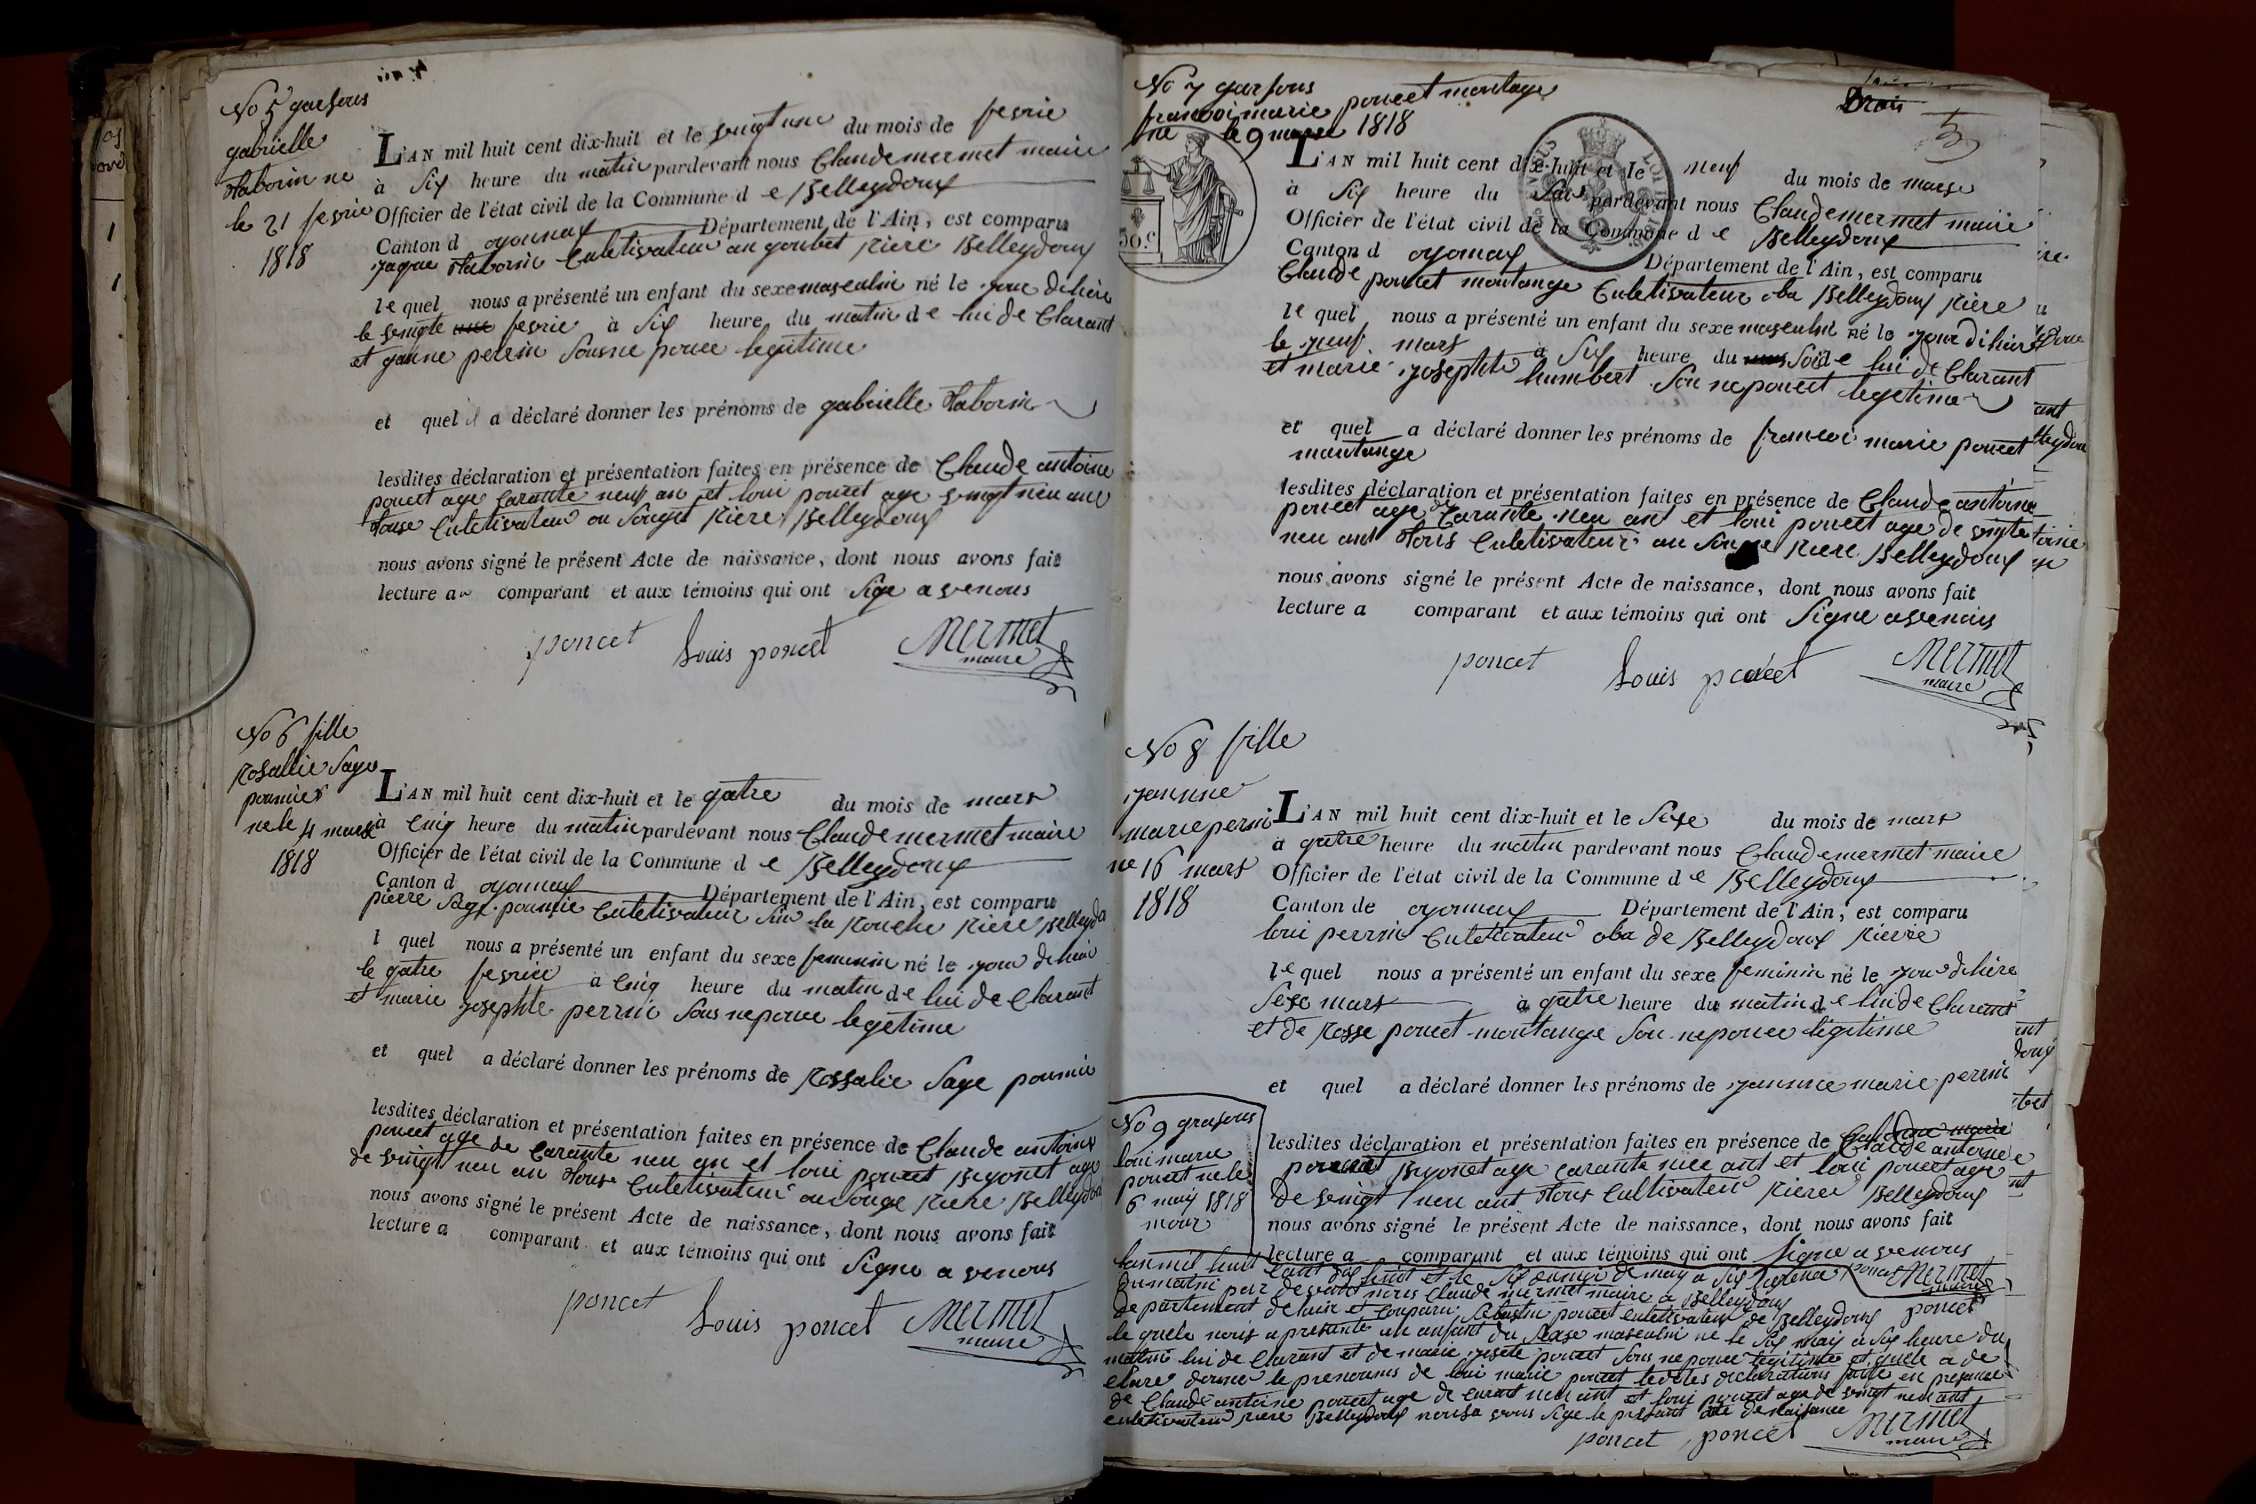 No 5 garsons
gabrielle
Taborin ne
le 21 fevrie
1818
L'AN mil huit cent dix-huit et le vingt une du mois de fevrie
à six heure du matin pardevant nous Claude mermet maire
Officier de l'état civil de la Commune d e Belleydoux
Canton d oyonnax Département de l'Ain, est comparu
jaque Taborin Culetivateur au goubet riere Belleydoux
le quel nous a présenté un enfant du sexe masculin né le jour dehière
le vingte une fevrie à six heure du matin de lui de Clarant
et ganne perrin sousne pouce legitime
et quel il a déclaré donner les prénoms de gabrielle Taborin
lesdites déclaration et présentation faites en présence de Claude antoine
poncet age carante neuf an et loui poncet age vingt neu ane
touse Culetivateur au souget riere Belleydoux
nous avons signé le présent Acte de naissance, dont nous avons fait
lecture au comparant et aux témoins qui ont sige a venous
poncet Louis poncet Mermet
maire
No 6 fille
Rosallie Sage
pournier
ne le 4 marse
1818
L'AN mil huit cent dix-huit et le qatre du mois de mars
à cinq heure du matin pardevant nous Claude mermet maire
Officier de l'état civil de la Commune d e Belleydoux
Canton d oyonnax Département de l'Ain, est comparu
pierre Sage pournie Culetivateur sur la Rouche riere Belleyda
l quel nous a présenté un enfant du sexe feminin né le jour de hier
le qatre fevrier à cinq heure du matin de lui de Clarant
et marie josephte perrin sous ne pouce legetime
et quel a déclaré donner les prénoms de Rossalie Sage pournie
lesdites déclaration et présentation faites en présence de Claude antoine
poncet age de carante neu an et loui poncet Bryonet age
de vingt neu an tous Culetivateur au souge riere Belleydou
nous avons signé le présent Acte de naissance, dont nous avons fait
lecture a comparant et aux témoins qui ont signe a venous
poncet Louis poncet Mermet
maire
No 7 garsons
francoi marie poncet montage
ne le 9 marse 1818
L'AN mil huit cent dix-huit et le neuf du mois de marse
à six heure du soir pardevant nous Claude mermet maire
Officier de l'état civil de la Commune d e Belleydoux
Canton d oyonnax Département de l'Ain, est comparu
Claude poncet montange Culetivateur oba Belleydoux riere
le quel nous a présenté un enfant du sexe masculin né le jour dihière
le neuf mars à six heure du soir de lui de Clarant
et marie josephte humbert son ne poucet legetime
et quel a déclaré donner les prénoms de francoi marie poncet
montange
lesdites déclaration et présentation faites en présence de Claude antoine
poncet age de carante neu ant et loui poncet age de vingte
neu ant tous Culetivateur au souge riere Belleydoux
nous avons signé le présent Acte de naissance, dont nous avons fait
lecture a comparant et aux témoins qui ont signe avenous
poncet Louis poncet Mermet
maire
No 8 fille
jeannne
marie perrin
ne 16 mars
1818
L'AN mil huit cent dix-huit et le sexe du mois de mars
à qatre heure du matin pardevant nous Claude mermet maire
Officier de l'état civil de la Commune d e Belleydoux
Canton de oyonnax Département de l'Ain, est comparu
loui perrin Culetivateur oba de Belleydoux rierre
le quel nous a présenté un enfant du sexe feminin né le jour dihière
sexe mars à qatre heure du matin d e lui de Clarant
et de Rosse poncet montange son ne pouce legitime
et quel a déclaré donner les prénoms de jeannne marie perrin
lesdites déclaration et présentation faites en présence de Claude antoine
poncet Bryonet age carante neu ant et loui poncet age
de vingt neu ant tous Cultivateur riere Belleydoux
nous avons signé le présent Acte de naissance, dont nous avons fait
lecture a comparant et aux témoins qui ont signe a venous
poncet Mermet
maire
poncet
No 9 grasons
loui marie
poncet ne le
6 maiy 1818
mour
lan mil huit cent dix huit et le six du moi de may a six heures
du matin par devant nous Claude mermet maire a Belleydoux
departement de lain et comparu sebastin poncet culetivateur de Belleydoux
le quele nous a presante un anfant du sexse masculin ne le six maiy a six heure du
matin lui de Clarant et de marie josete poncet sous ne pouce legitime et quele a de
clare donner le prenoums de loui marie poncet les dites declarations faite en presance
de Claude antoine poncet age de carant neu ant et loui poncet age de vingt neu ant
culetivateur riere Belleydoux nous a vons sige le presant acte de naisance
poncet poncet Mermet
maire